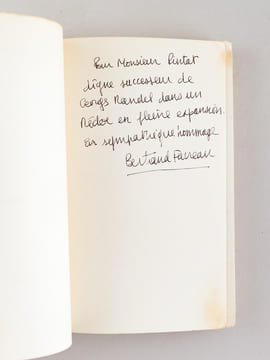 Pour Monsieur Pintat
digne successeur de
Georges Mandel dans un
Médoc en pleine expansion.
En sympathique hommage
Bertrand Favreau